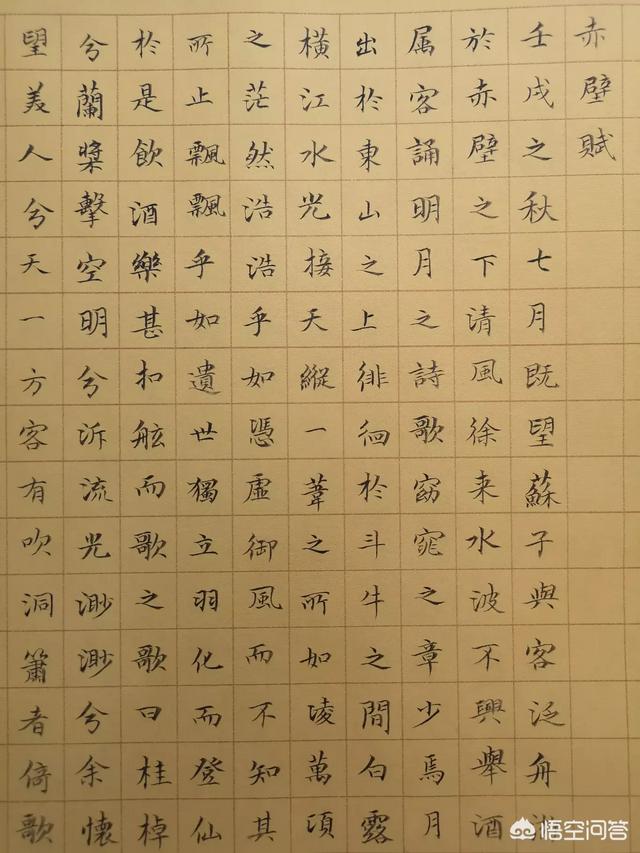 赤壁賦
壬戌之秋七月既望蘇子與客泛舟
於赤壁之下清風徐来水波不興舉酒
属客誦明月之詩歌窈窕之章少焉月
出於東山之上徘徊於斗牛之間白露
橫江水光接天縱一葦之所如淩萬頃
之茫然浩浩乎如憑虛御風而不知其
所止飄飄乎如遺世獨立羽化而登仙
於是飲酒樂甚扣舷而歌之歌曰桂棹
兮蘭槳擊空明兮泝流光渺渺兮余懷
望美人兮天一方客有吹洞簫者倚歌
悟空问答